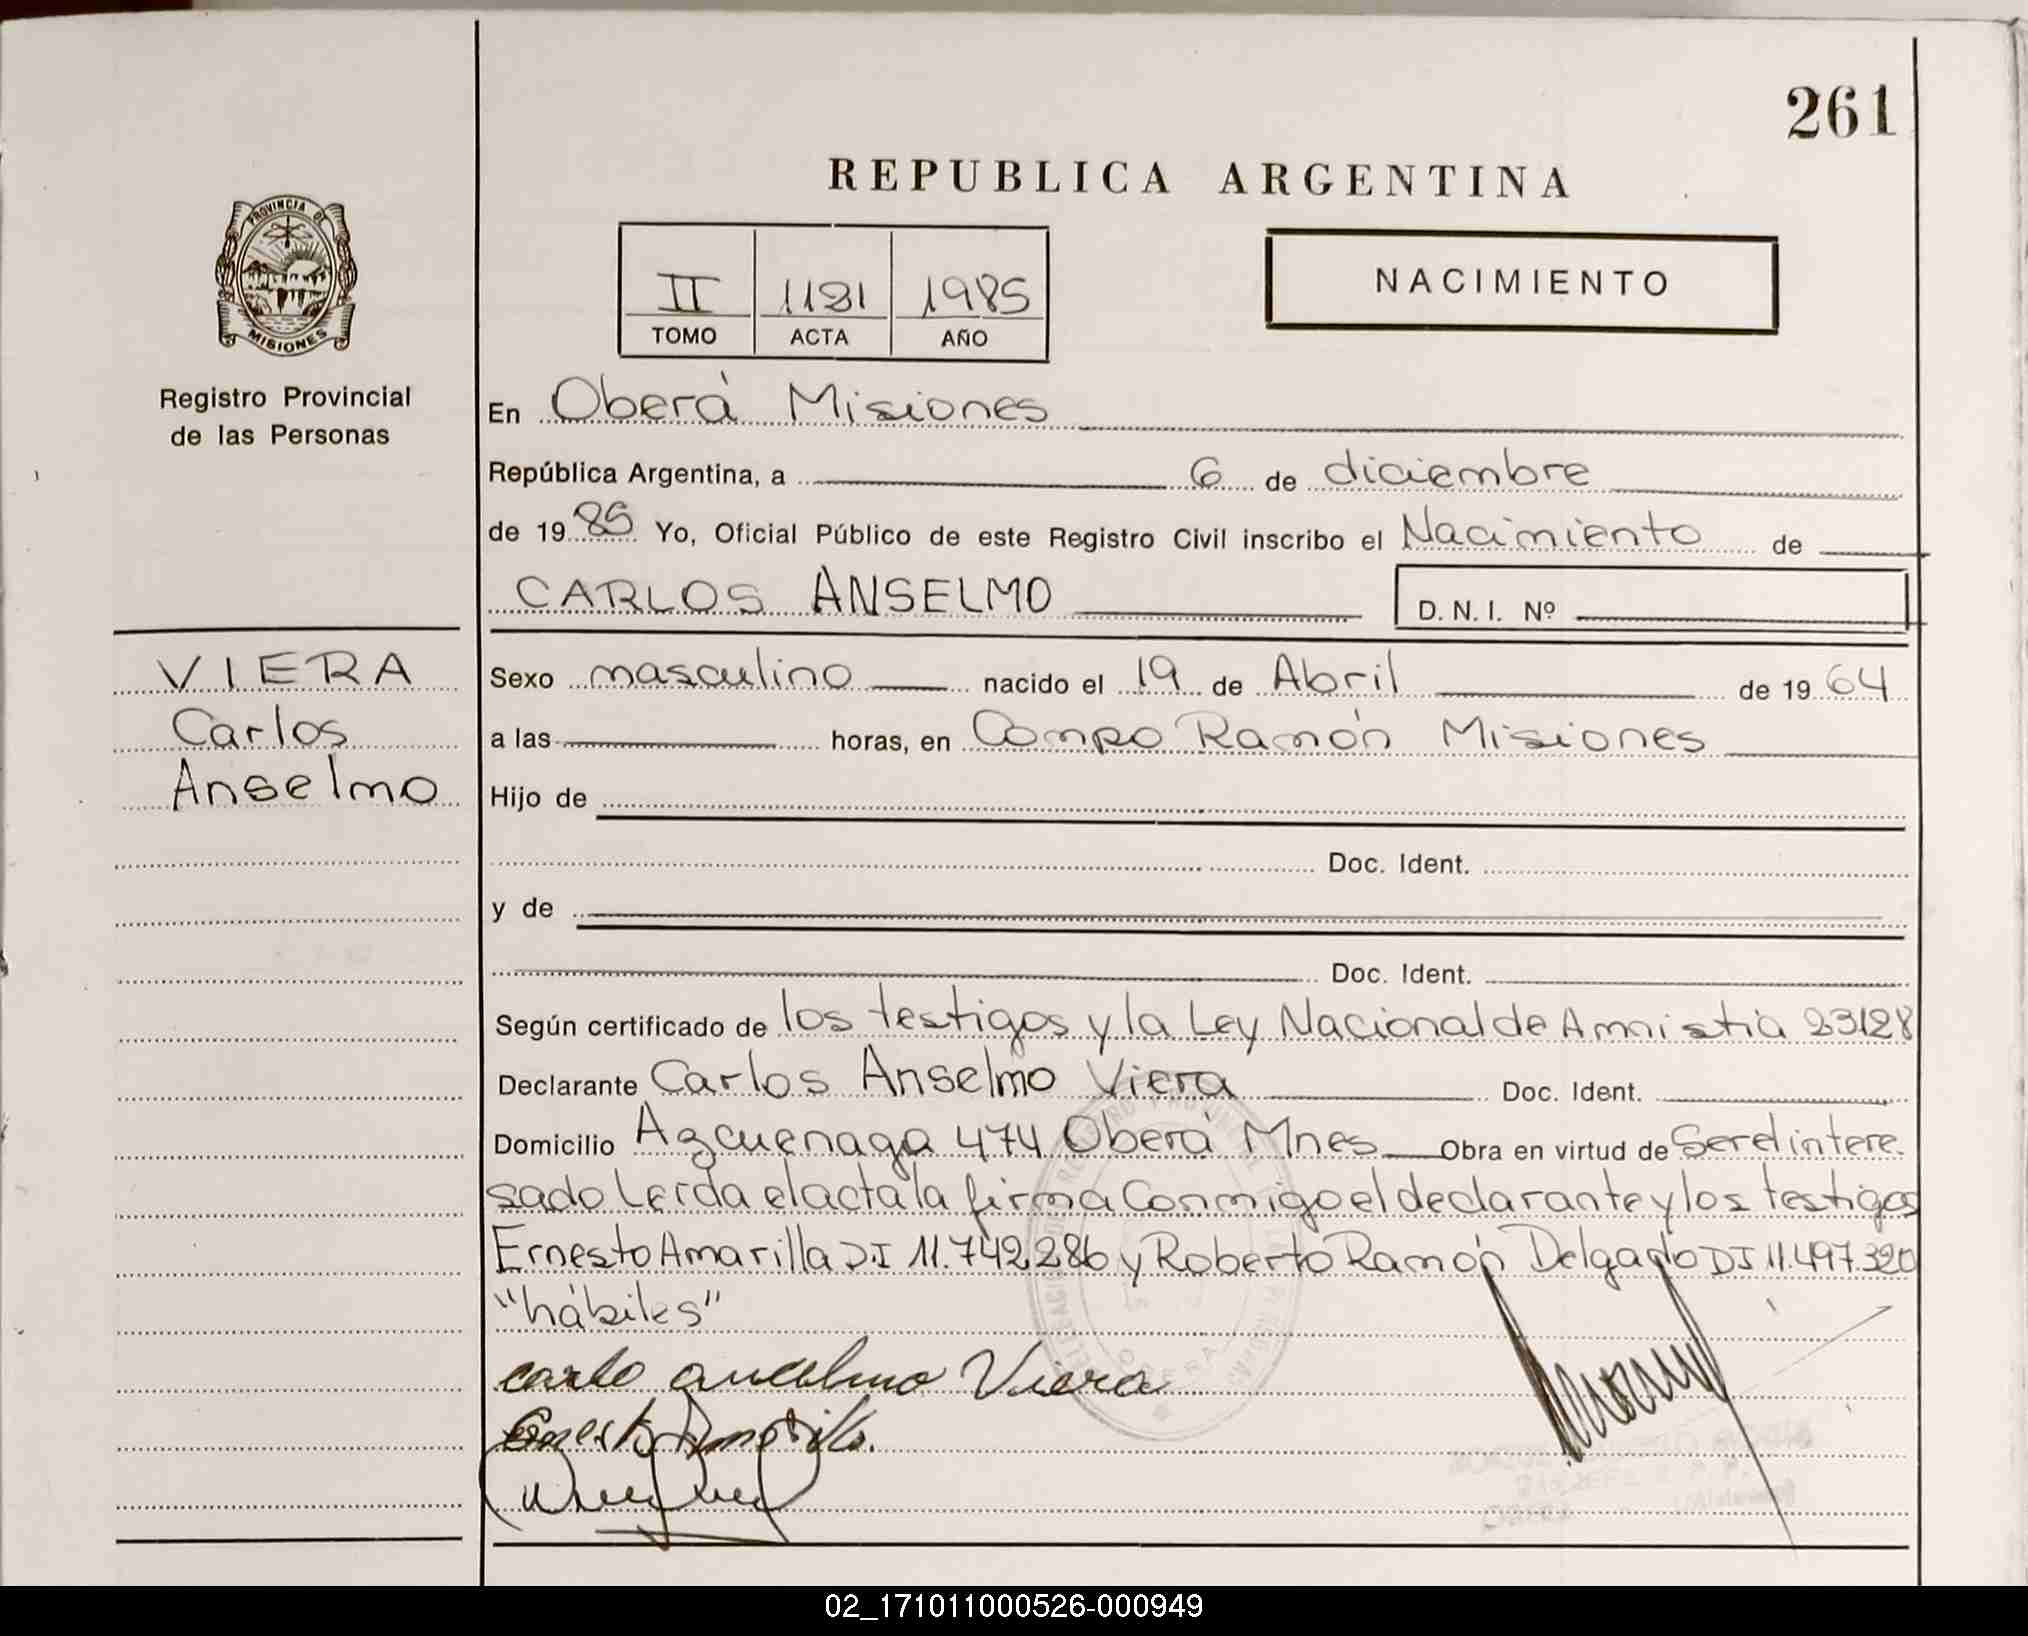 261
REPUBLICA ARGENTINA
PROVINCIA DE
MISIONES
Registro Provincial
de las Personas
II 1181 1985
TOMO ACTA AÑO
NACIMIENTO
En Oberá Misiones
República Argentina, a 6 de diciembre
de 1985 Yo, Oficial Público de este Registro Civil inscribo el Nacimiento de
CARLOS ANSELMO D. N. I. Nº
VIERA
Carlos
Anselmo
Sexo masculino nacido el 19 de Abril de 1964
a las horas, en Campo Ramón Misiones
Hijo de
Doc. Ident.
y de
Doc. Ident.
Según certificado de los testigos y la Ley Nacional de Amnistia 23128
Declarante Carlos Anselmo Viera Doc. Ident.
Domicilio Azcuenaga 474 Oberá Mnes Obra en virtud de Ser el intere
sado Leida el acta la firma Conmigo el declarante y los testigos
Ernesto Amarilla D.I 11.742,286 y Roberto Ramón Delgado DI 11.497.320
"hábiles"
carlo ancelmo Viera
02_171011000526-000949